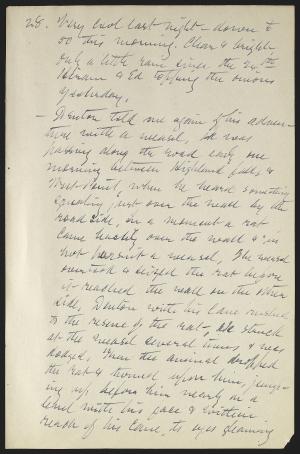 28. Very cool last night - down to
50 this morning. Clear & bright,
only a little rain since the 24th
Hiram & Ed topping the onions
yesterday.
— Denton told me again of his adven-
ture with a weasel, he was
passing along the road early one
morning between Highland falls &
West Point, when he heard something
squealing just over the wall by the
roadside, in a moment a rat
came hastily over the wall & in
hot pursuit a weasel, The weasel
overtook & seized the rat before
it reached the wall on the other
side, Denton with his cane rushed
to the rescue of the rat, He struck
at the weasel several times & was
dodged. When the animal dropped
the rat & turned upon him, jump-
ing up before him nearly on a
level with his face & within
reach of his cane, its eyes gleaming